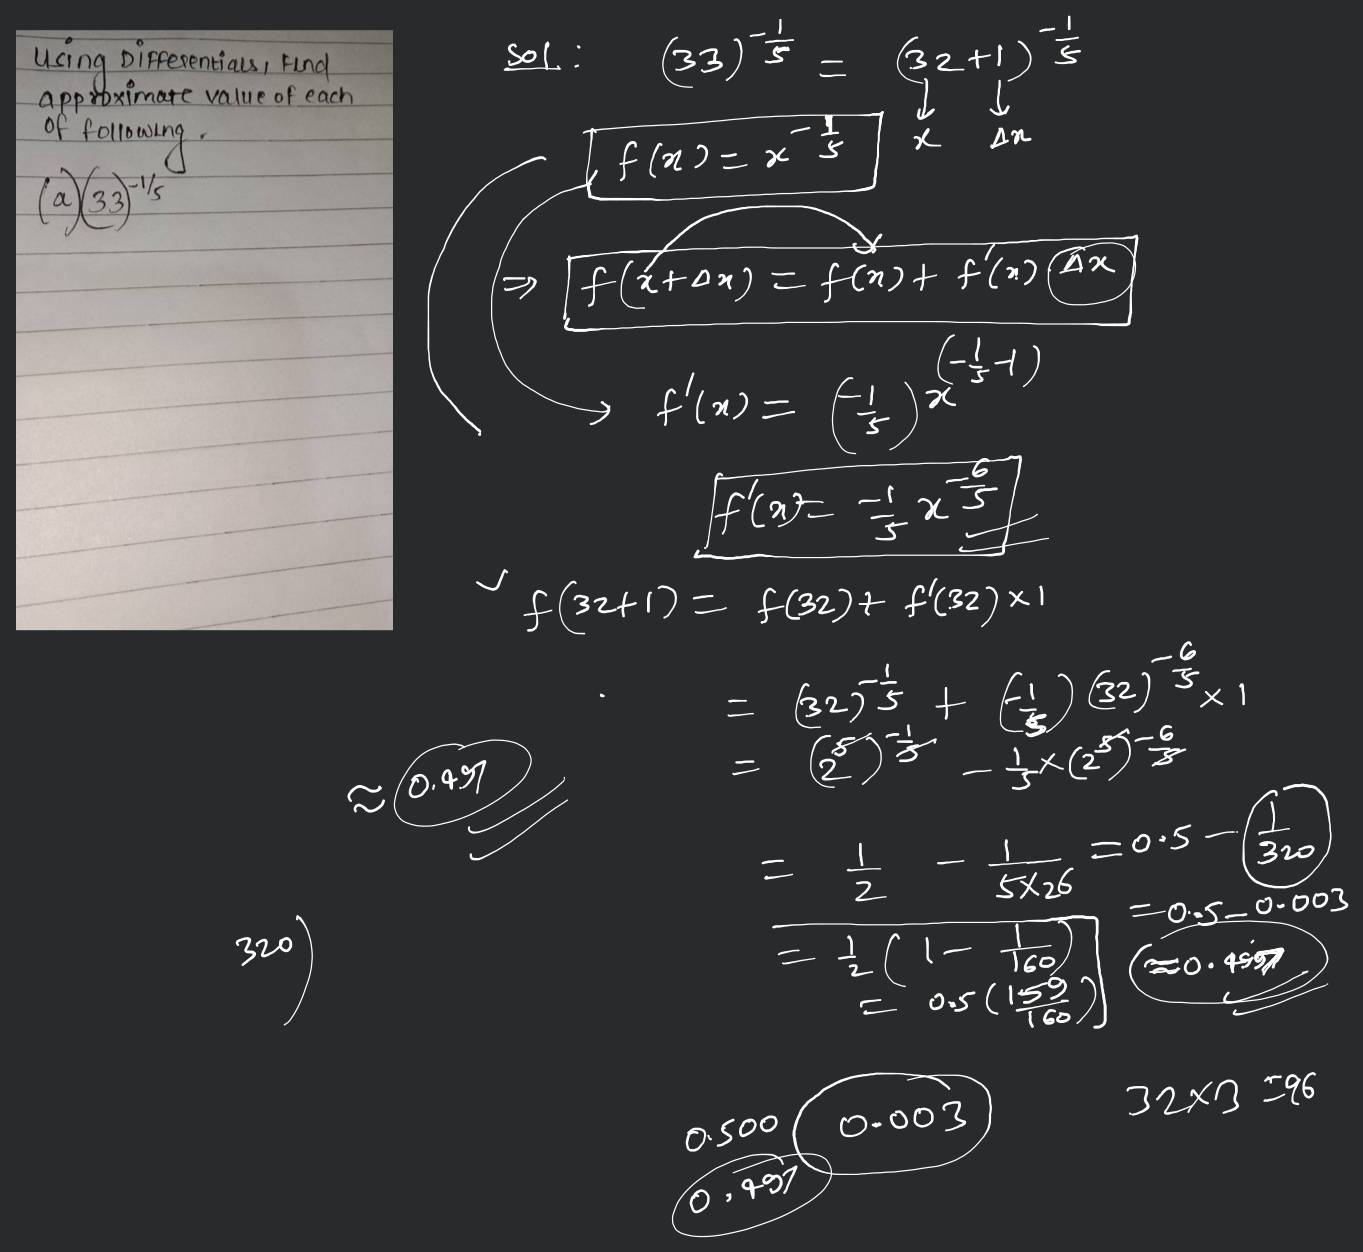 Using Differentials, Find
approximate value of each
of following.
(a) (33)^-1/5
Sol : (33)^-1/5 = (32+1)^-1/5
x Δx
f(x) = x^-1/5
⇒ f(x+Δx) = f(x) + f'(x) Δx
→ f'(x) = (-1/5) x^(-1/5-1)
f'(x) = -1/5 x^-6/5
✓ f(32+1) = f(32) + f'(32) × 1
= (32)^-1/5 + (-1/5) (32)^-6/5 × 1
= (2^5)^-1/5 - 1/5 × (2^5)^-6/5
≈ 0.497
= 1/2 - 1/5×26 = 0.5 - 1/320
= 0.5 - 0.003
= 1/2 (1 - 1/160)
≈ 0.497
= 0.5 (159/160)
320)
0.500 0.003
32×3 = 96
0.497